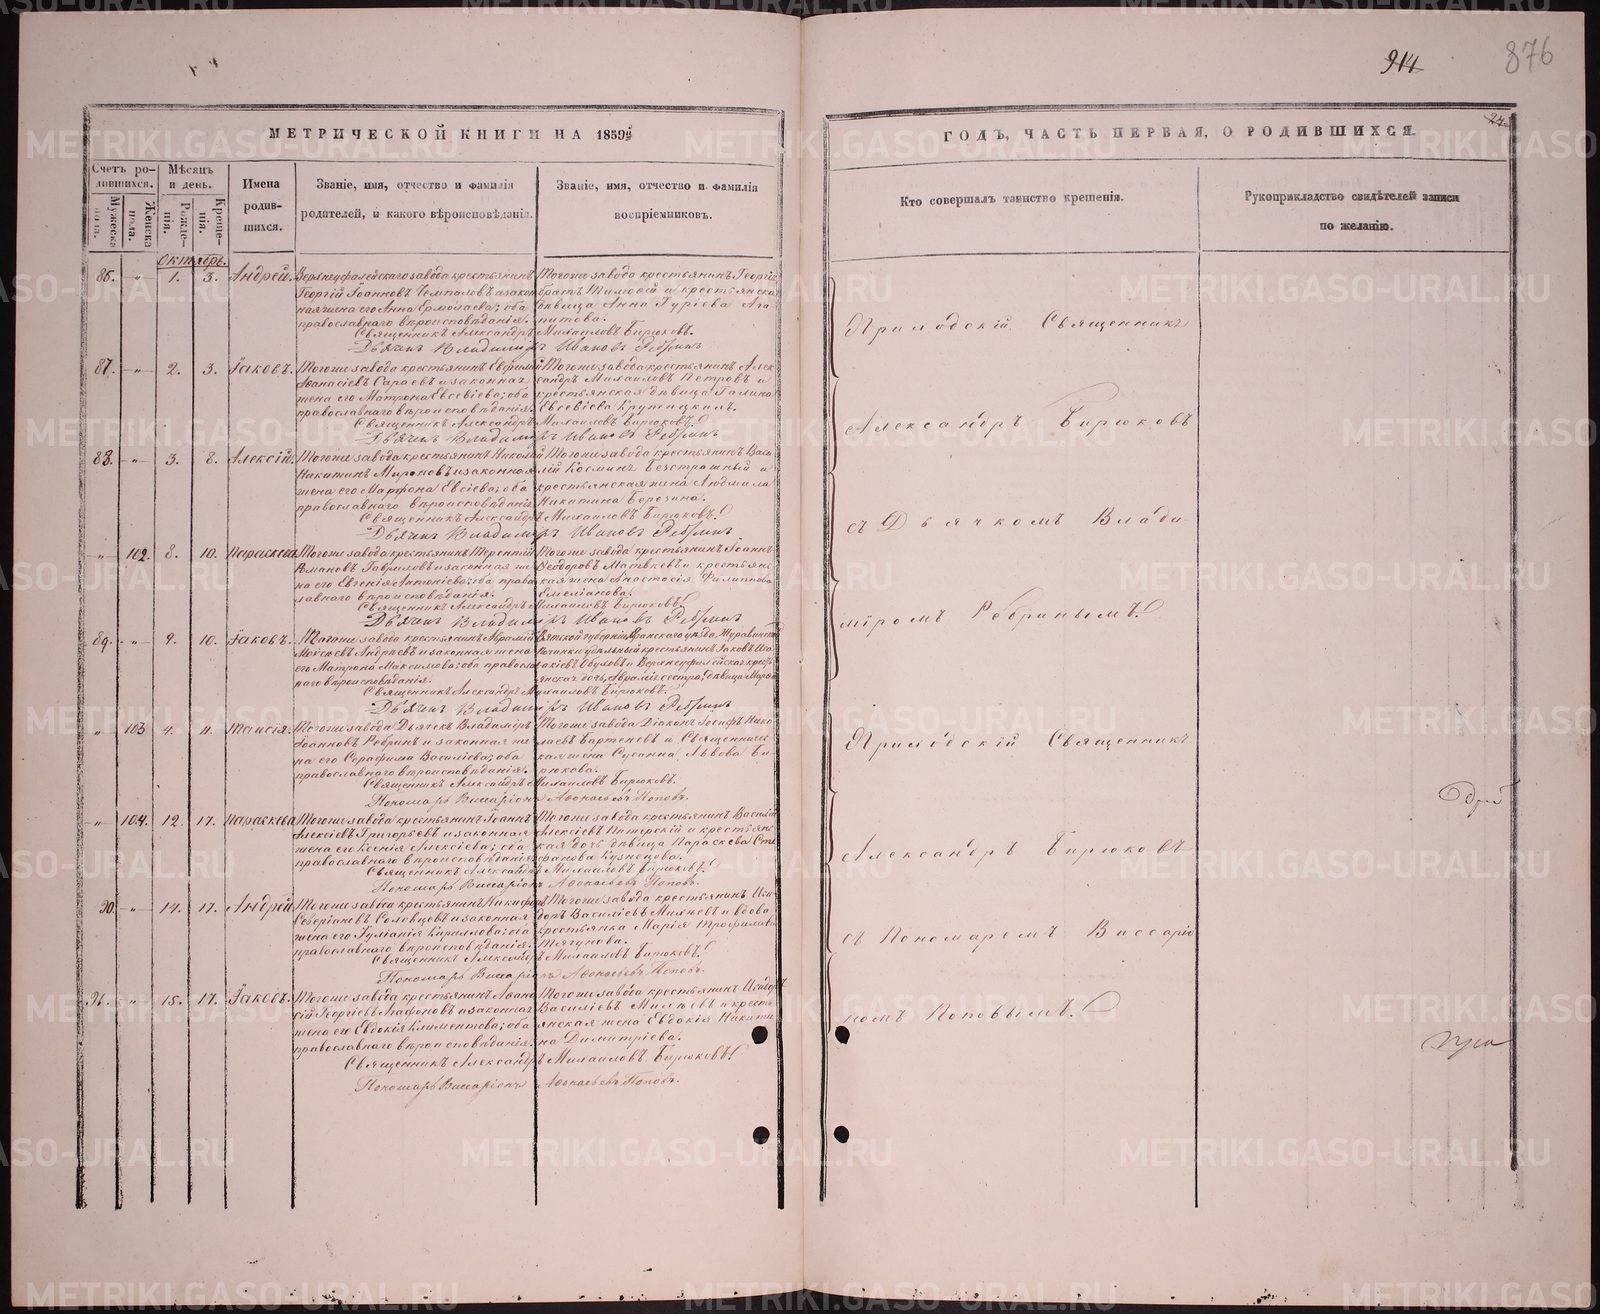 914
876
МЕТРИЧЕСКОЙ КНИГИ НА 1859й
ГОДЪ, ЧАСТЬ ПЕРВАЯ, О РОДИВШИХСЯ.
Счетъ родившихся.
Мужеска пола.
Женска пола.
Мѣсяцъ и день.
Рожденія.
Крещенія.
Имена родившихся.
Званіе, имя, отчество и фамилія
родителей, и какого вѣроисповѣданія.
Званіе, имя, отчество и фамилія
воспріемниковъ.
Кто совершалъ таинство крещенія.
Рукоприкладство свидѣтелей записи
по желанію.
Октябрь.
86. -„- 1. 3. Андрей.
Верхнеуфалейскаго завода крестьянинъ
Георгій Іоанновъ и законная жена его Анна Ермолаева; оба
православнаго вѣроисповѣданія.
Тогоже завода крестьянинъ Георгій
братъ Тимофей и крестьянская
дѣвица Анна Гуріева
Священникъ Александръ Михаиловъ Бирюковъ.
Дьячекъ Владиміръ Ивановъ Ребринъ
87. -„- 2. 3. Іаковъ.
Тогоже завода крестьянинъ Евфимій
Аѳанасіевъ Сараевъ и законная
жена его Матрона Евсевіева; оба
православнаго вѣроисповѣданія.
Тогоже завода крестьянинъ Александръ Михаиловъ Петровъ и
крестьянская дѣвица Галина
Евсевіева
Священникъ Александръ Михаиловъ Бирюковъ.
Дьячекъ Владиміръ Ивановъ Ребринъ
88. -„- 3. 8. Алексій.
Тогоже завода крестьянинъ Николай
Никитинъ Мироновъ и законная
жена его Марфона Евсіева; оба
православнаго вѣроисповѣданія.
Тогоже завода крестьянинъ Василій Косминъ Безстрашный и
крестьянская жена Людмила
Никитина Березина.
Священникъ Александръ Михаиловъ Бирюковъ.
Дьячекъ Владиміръ Ивановъ Ребринъ
„ 102. 8. 10. Параскева.
Тогоже завода крестьянинъ Терентій
Романовъ Гавриловъ и законная жена его Евгенія Антоніева; оба православнаго вѣроисповѣданія.
Тогоже завода крестьянинъ Іоаннъ
Ѳеодоровъ Матвѣевъ и крестьянская жена Анастасія Филиппова
Емеліанова.
Священникъ Александръ Михаиловъ Бирюковъ.
Дьячекъ Владиміръ Ивановъ Ребринъ
89. -„- 9. 10. Іаковъ.
Тогоже завода крестьянинъ Авраамій
Моисеевъ Андреевъ и законная жена
его Матрона Максимова; оба православнаго вѣроисповѣданія.
Вятской губерніи
удѣльный крестьянинъ Іаковъ
сестра, дѣвица
Священникъ Александръ Михаиловъ Бирюковъ.
Дьячекъ Владиміръ Ивановъ Ребринъ
„ 103 9. 11. Таисія.
Тогоже завода Дьячекъ Владиміръ
Іоанновъ Ребринъ и законная жена его Серафима Василіева; оба
православнаго вѣроисповѣданія.
Тогоже завода Діаконъ Іосифъ Николаевъ Бартеневъ и Священническая жена Сусанна Львова Бирюкова.
Священникъ Александръ Михаиловъ Бирюковъ.
Пономарь Виссаріонъ Аѳонасьевъ Поповъ.
„ 104. 12. 17. Параскева
Тогоже завода крестьянинъ Іоаннъ
Алексіевъ Григорьевъ и законная
жена его Ксенія Алексіева; оба
православнаго вѣроисповѣданія
Тогоже завода крестьянинъ Василій
Алексіевъ Питерскій и крестьянская дочь дѣвица Параскева Стефанова Кузнецова.
Священникъ Александръ Михаиловъ Бирюковъ.
Пономарь Виссаріонъ Аѳонасьевъ Поповъ.
90. -„- 14. 17. Андрей
Тогоже завода крестьянинъ Никифоръ
Северіановъ Соловцевъ и законная
жена его Іуліанія Кириллова; оба
православнаго вѣроисповѣданія.
Тогоже завода крестьянинъ Исидоръ Василіевъ и вдова
крестьянка Марія Трофимова
Тягунова.
Священникъ Александръ Михаиловъ Бирюковъ.
Пономарь Виссаріонъ Аѳонасьевъ Поповъ.
91. „ 15. 17. Іаковъ.
Тогоже завода крестьянинъ Аѳанасій Георгіевъ и законная
жена его Евдокія Климентова; оба
православнаго вѣроисповѣданія.
Тогоже завода крестьянинъ Исидоръ
Василіевъ и крестьянская жена Евдокія Никитина Димитріева.
Священникъ Александръ Михаиловъ Бирюковъ.
Пономарь Виссаріонъ Аѳонасьевъ Поповъ.
Приходскій Священникъ
Александръ Бирюковъ
съ Дьячкомъ Влади-
міромъ Ребринымъ.
Приходскій Священникъ
Александръ Бирюковъ
съ Пономаремъ Виссаріо
номъ Поповымъ.
METRIKI.GASO-URAL.RU